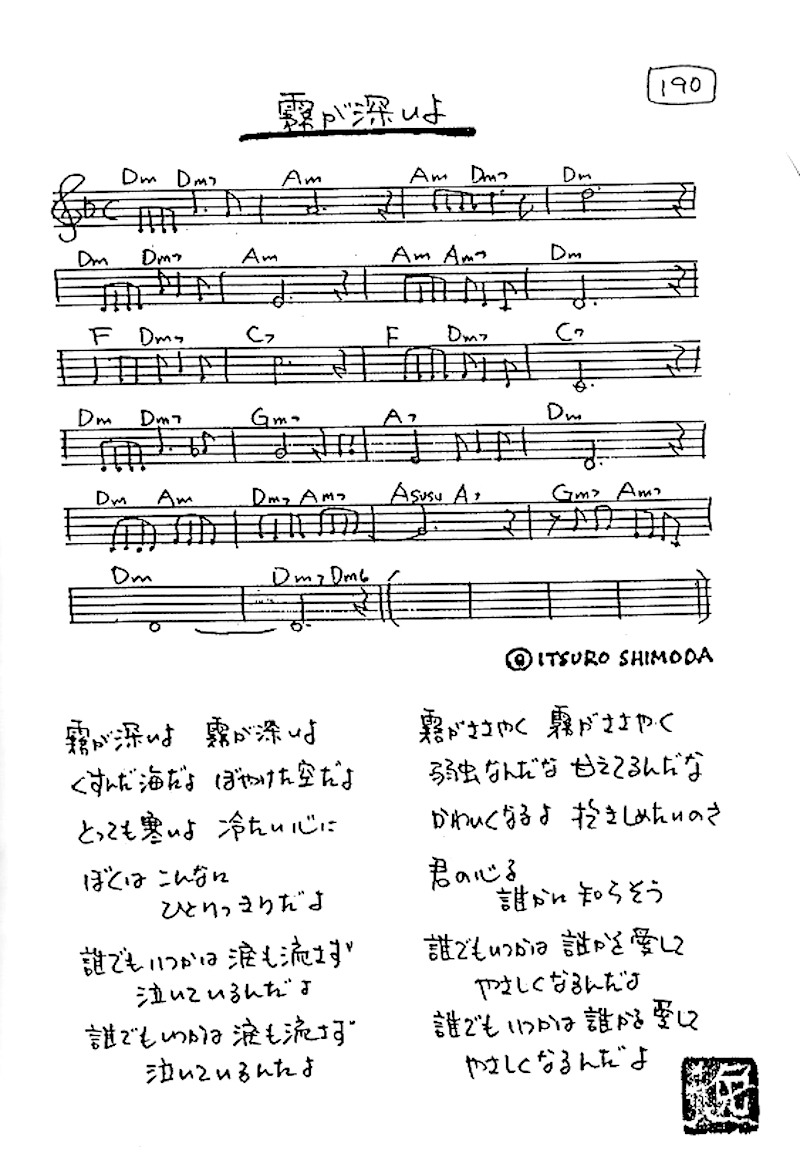 190
霧が深いよ
Dm Dm7 Am Am Dm7 Dm
Dm Dm7 Am Am Am7 Dm
F Dm7 C7 F Dm7 C7
Dm Dm7 Gm7 A7 Dm
Dm Am Dm7 Am7 Asus4 A7 Gm7 Am7
Dm Dm7 Dm6
ITSURO SHIMODA
霧が深いよ 霧が深いよ
くすんだ海だよ ぼやけた空だよ
とっても寒いよ 冷たい心に
ぼくは こんなに
ひとりっきりだよ
誰でもいつかは 涙も流さず
泣いているんだよ
誰でもいつかは 涙も流さず
泣いているんだよ
霧がささやく 霧がささやく
弱虫なんだな 甘えてるんだな
かわいくなるよ 抱きしめたいのさ
君の心を
誰かに 知らそう
誰でもいつかは 誰かを愛して
やさしくなるんだよ
誰でもいつかは 誰かを愛して
やさしくなるんだよ